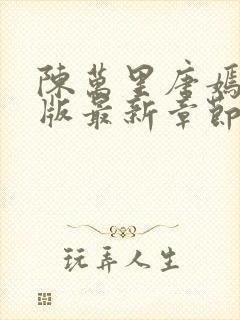 陳萬里唐嫣
版最新章節
玩弄人生